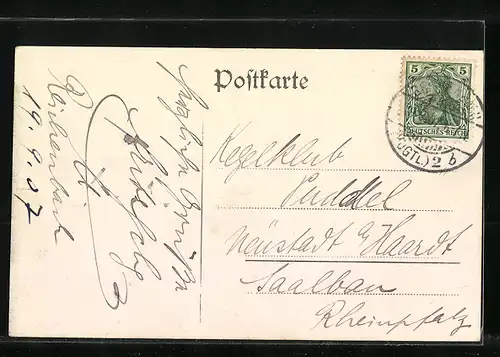 Postkarte
5 5
DEUTSCHES REICH
(VOGTL.) 2 b
Kegelklub
Puddel
Neustadt a/Haardt
Saalbau
Rheinpfalz
Herzliche Grüße
Reichenbach
19.9.07